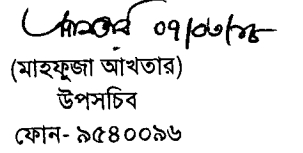 ০৭/০৬/১৮
(মাহফুজা আখতার)
উপসচিব
ফোন- ৯৫৪০০৯৬